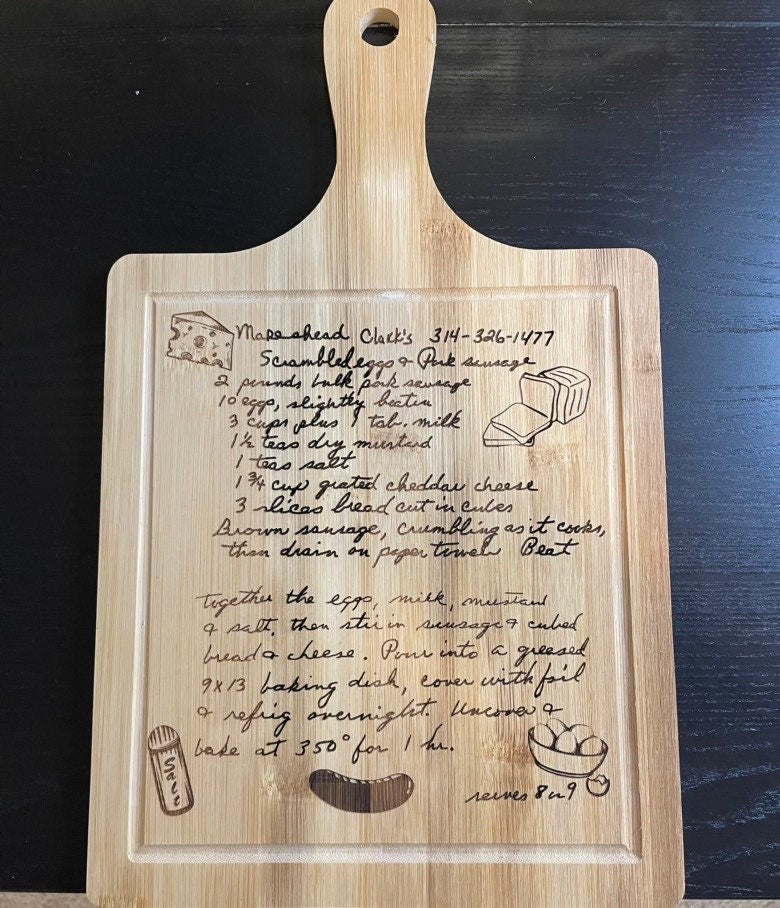 Make ahead Clark's 314-326-1477
Scrambled eggs & Pork sausage
2 pounds bulk pork sausage
10 eggs, slightly beaten
3 cups plus 1 tab. milk
1 1/2 teas dry mustard
1 teas salt
1 3/4 cup grated cheddar cheese
3 slices bread cut in cubes
Brown sausage, crumbling as it cooks,
then drain on paper towels Beat
together the eggs, milk, mustard
& salt, then stir in sausage & cubed
bread & cheese. Pour into a greased
9x13 baking dish, cover with foil
& refrig overnight. Uncover &
bake at 350° for 1 hr.
Salt
serves 8 or 9